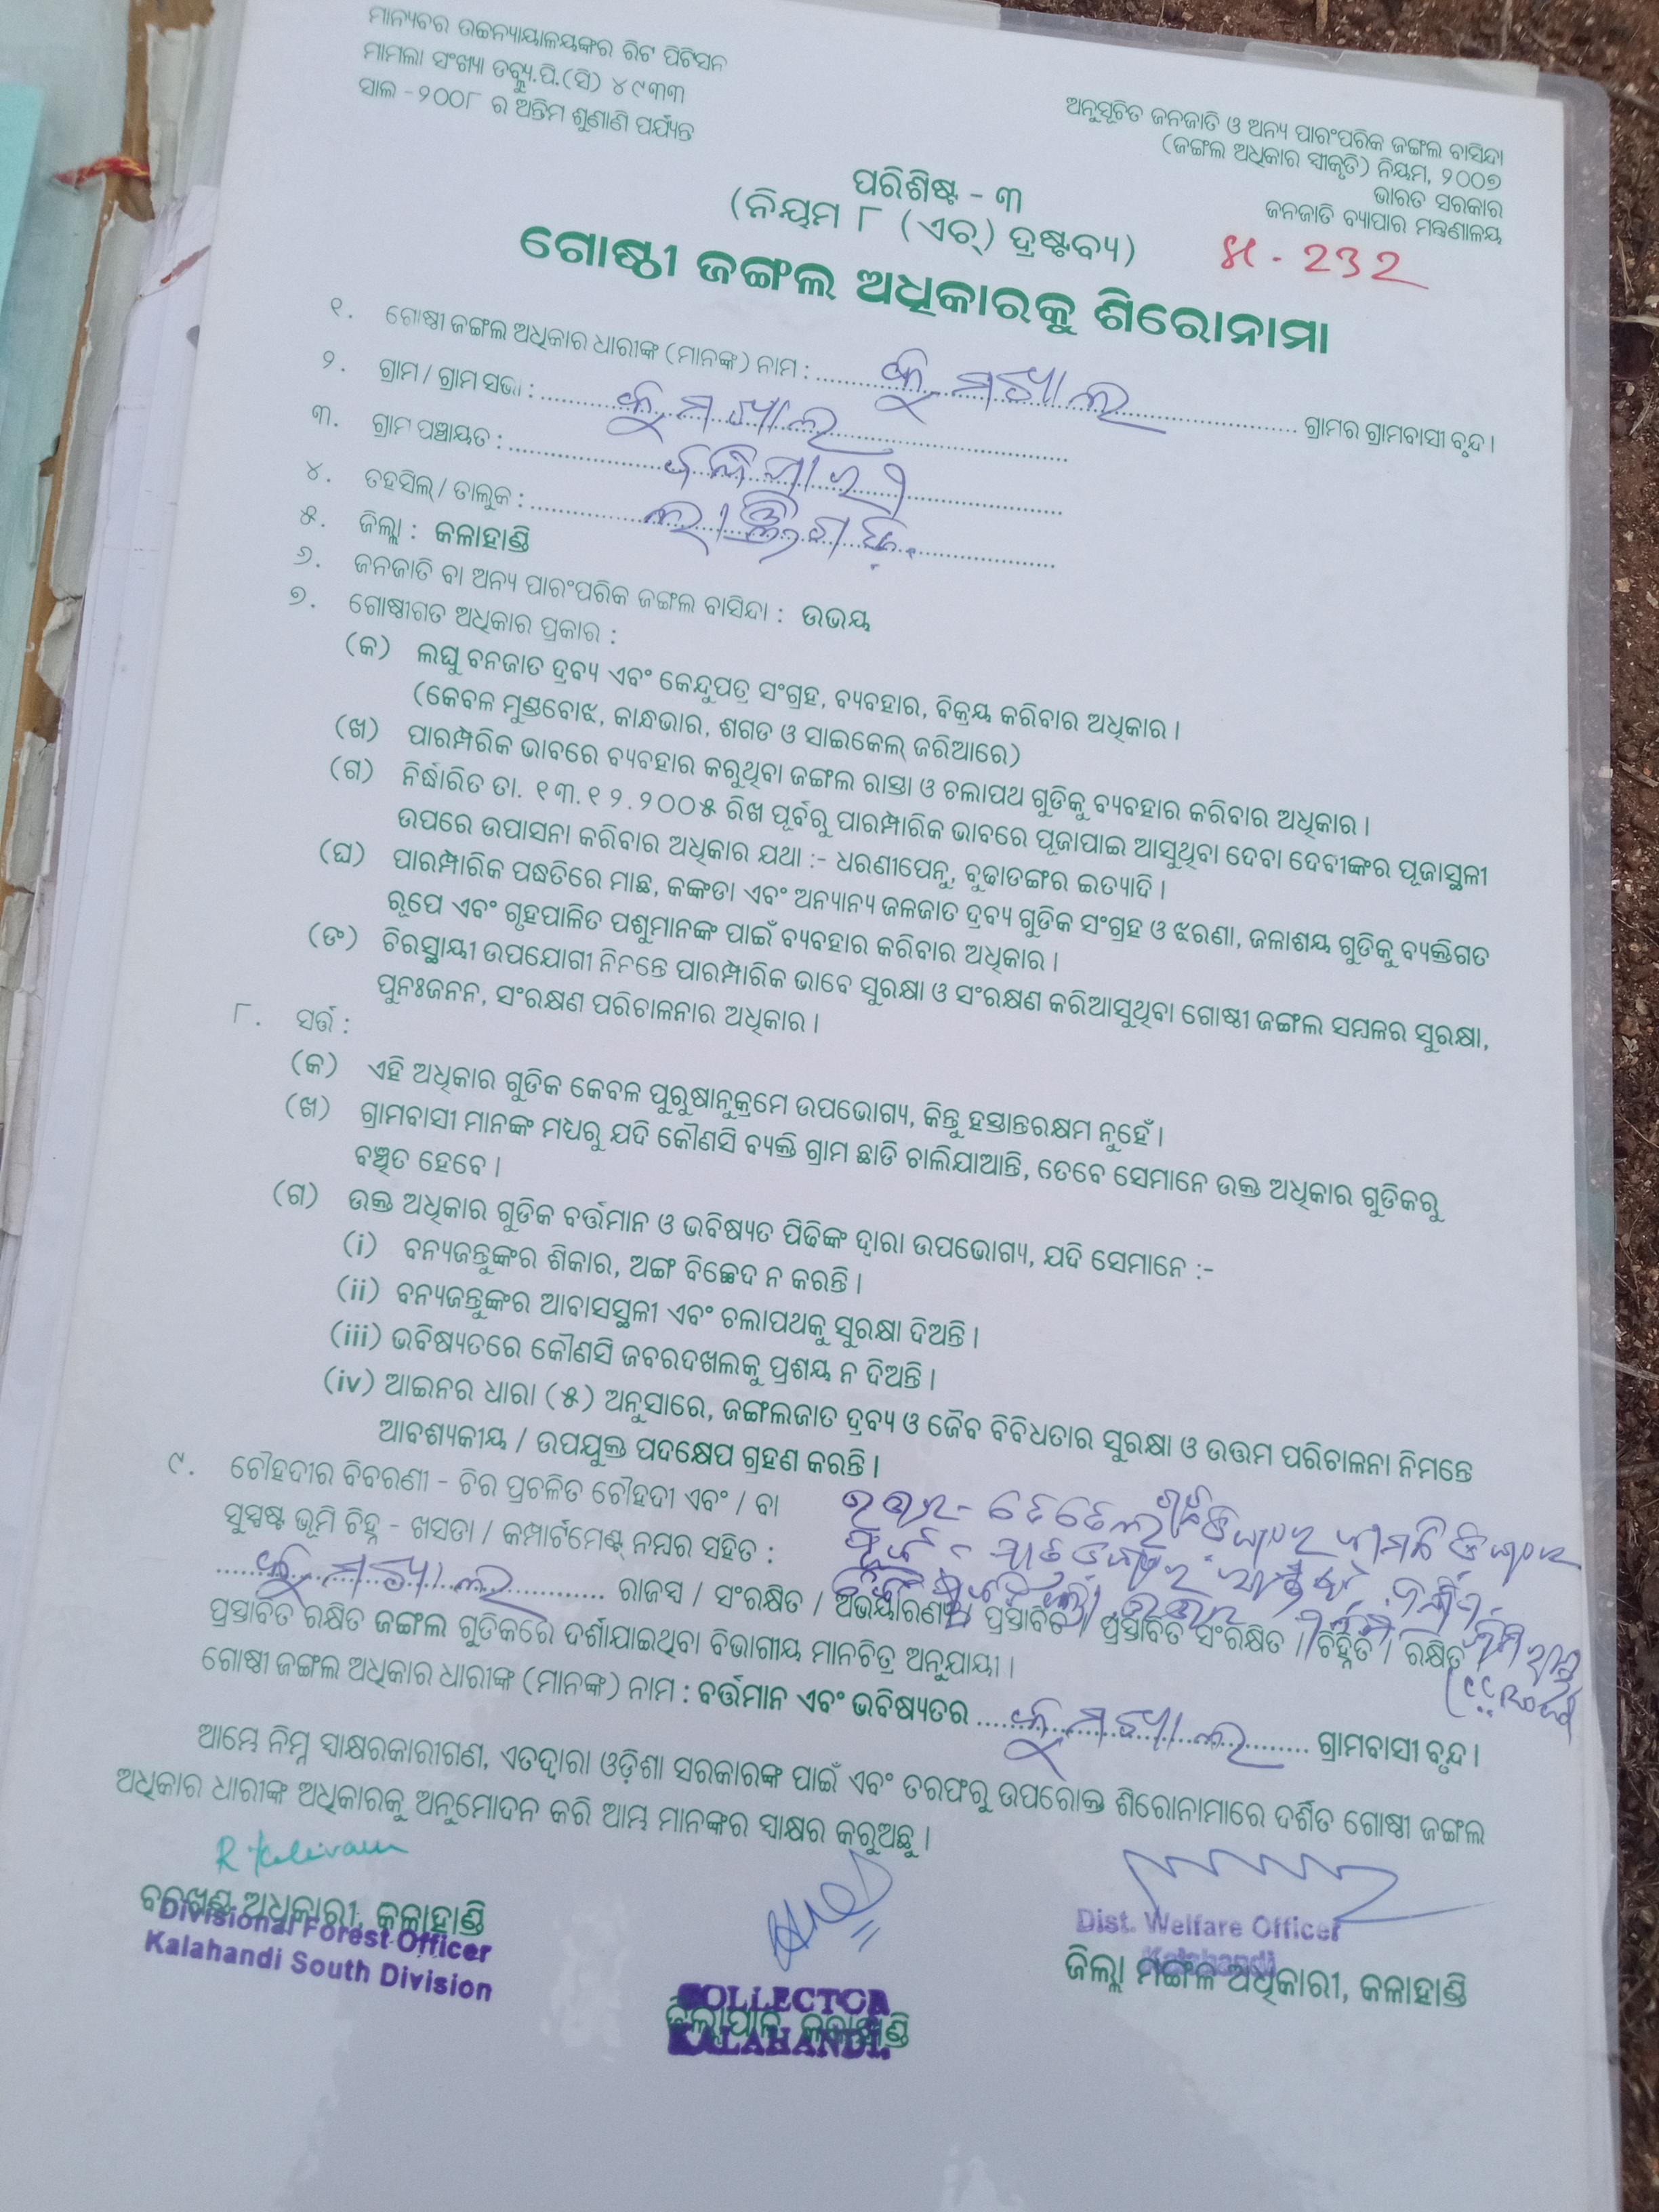 ମାନ୍ୟବର ଉଚ୍ଚନ୍ୟାୟାଳୟଙ୍କର ରିଟ ପିଟିସନ
ମାମଲା ସଂଖ୍ୟା ଡବ୍ଲ୍ୟୁ.ପି.(ସି) ୪୯୩୩
ସାଲ -୨୦୦୮ ର ଅନ୍ତିମ ଶୁଣାଣି ପର୍ଯ୍ୟନ୍ତ
ଅନୁସୂଚିତ ଜନଜାତି ଓ ଅନ୍ୟ ପାରଂପରିକ ଜଙ୍ଗଲ ବାସିନ୍ଦା
(ଜଙ୍ଗଲ ଅଧିକାର ସ୍ୱୀକୃତି) ନିୟମ, ୨୦୦୭
ଭାରତ ସରକାର
ଜନଜାତି ବ୍ୟାପାର ମନ୍ତ୍ରଣାଳୟ
232
ପରିଶିଷ୍ଟ - ୩
(ନିୟମ ୮ (ଏଚ୍) ଦ୍ରଷ୍ଟବ୍ୟ)
ଗୋଷ୍ଠୀ ଜଙ୍ଗଲ ଅଧିକାରକୁ ଶିରୋନାମା
୧. ଗୋଷ୍ଠୀ ଜଙ୍ଗଲ ଅଧିକାର ଧାରୀଙ୍କ (ମାନଙ୍କ) ନାମ : ଗ୍ରାମର ଗ୍ରାମବାସୀ ବୃନ୍ଦ।
୨. ଗ୍ରାମ / ଗ୍ରାମ ସଭା :
୩. ଗ୍ରାମ ପଞ୍ଚାୟତ :
୪. ତହସିଲ୍ / ତାଲୁକ : ଲାଞ୍ଜିଗଡ଼
୫. ଜିଲ୍ଲା : କଳାହାଣ୍ଡି
୬. ଜନଜାତି ବା ଅନ୍ୟ ପାରଂପରିକ ଜଙ୍ଗଲ ବାସିନ୍ଦା : ଉଭୟ
୭. ଗୋଷ୍ଠୀଗତ ଅଧିକାର ପ୍ରକାର :
(କ) ଲଘୁ ବନଜାତ ଦ୍ରବ୍ୟ ଏବଂ କେନ୍ଦୁପତ୍ର ସଂଗ୍ରହ, ବ୍ୟବହାର, ବିକ୍ରୟ କରିବାର ଅଧିକାର।
(କେବଳ ମୁଣ୍ଡବୋଝ, କାନ୍ଧଭାର, ଶଗଡ ଓ ସାଇକେଲ୍ ଜରିଆରେ)
(ଖ) ପାରମ୍ପରିକ ଭାବରେ ବ୍ୟବହାର କରୁଥିବା ଜଙ୍ଗଲ ରାସ୍ତା ଓ ଚଲାପଥ ଗୁଡିକୁ ବ୍ୟବହାର କରିବାର ଅଧିକାର।
(ଗ) ନିର୍ଦ୍ଧାରିତ ତା. ୧୩.୧୨.୨୦୦୫ ରିଖ ପୂର୍ବରୁ ପାରମ୍ପାରିକ ଭାବରେ ପୂଜାପାଇ ଆସୁଥିବା ଦେବା ଦେବୀଙ୍କର ପୂଜାସ୍ଥଳୀ
ଉପରେ ଉପାସନା କରିବାର ଅଧିକାର ଯଥା :- ଧରଣୀପେନୁ, ବୁଢାଡଙ୍ଗର ଇତ୍ୟାଦି।
(ଘ) ପାରମ୍ପାରିକ ପଦ୍ଧତିରେ ମାଛ, କଙ୍କଡା ଏବଂ ଅନ୍ୟାନ୍ୟ ଜଳଜାତ ଦ୍ରବ୍ୟ ଗୁଡିକ ସଂଗ୍ରହ ଓ ଝରଣା, ଜଳାଶୟ ଗୁଡିକୁ ବ୍ୟକ୍ତିଗତ
ରୂପେ ଏବଂ ଗୃହପାଳିତ ପଶୁମାନଙ୍କ ପାଇଁ ବ୍ୟବହାର କରିବାର ଅଧିକାର।
(ଙ) ଚିରସ୍ଥାୟୀ ଉପଯୋଗୀ ନିମନ୍ତେ ପାରମ୍ପାରିକ ଭାବେ ସୁରକ୍ଷା ଓ ସଂରକ୍ଷଣ କରିଆସୁଥିବା ଗୋଷ୍ଠୀ ଜଙ୍ଗଲ ସମ୍ବଳର ସୁରକ୍ଷା,
ପୁନଃଜନନ, ସଂରକ୍ଷଣ ପରିଚାଳନାର ଅଧିକାର।
୮. ସର୍ତ୍ତ :
(କ) ଏହି ଅଧିକାର ଗୁଡିକ କେବଳ ପୁରୁଷାନୁକ୍ରମେ ଉପଭୋଗ୍ୟ, କିନ୍ତୁ ହସ୍ତାନ୍ତରକ୍ଷମ ନୁହେଁ।
(ଖ) ଗ୍ରାମବାସୀ ମାନଙ୍କ ମଧ୍ୟରୁ ଯଦି କୌଣସି ବ୍ୟକ୍ତି ଗ୍ରାମ ଛାଡି ଚାଲିଯାଆନ୍ତି, ତେବେ ସେମାନେ ଉକ୍ତ ଅଧିକାର ଗୁଡିକରୁ
ବଞ୍ଚିତ ହେବେ।
(ଗ) ଉକ୍ତ ଅଧିକାର ଗୁଡିକ ବର୍ତ୍ତମାନ ଓ ଭବିଷ୍ୟତ ପିଢିଙ୍କ ଦ୍ୱାରା ଉପଭୋଗ୍ୟ, ଯଦି ସେମାନେ :-
(i) ବନ୍ୟଜନ୍ତୁଙ୍କର ଶିକାର, ଅଙ୍ଗ ବିଚ୍ଛେଦ ନ କରନ୍ତି।
(ii) ବନ୍ୟଜନ୍ତୁଙ୍କର ଆବାସସ୍ଥଳୀ ଏବଂ ଚଲାପଥକୁ ସୁରକ୍ଷା ଦିଅନ୍ତି।
(iii) ଭବିଷ୍ୟତରେ କୌଣସି ଜବରଦଖଲକୁ ପ୍ରଶୟ ନ ଦିଅନ୍ତି।
(iv) ଆଇନର ଧାରା (୫) ଅନୁସାରେ, ଜଙ୍ଗଲଜାତ ଦ୍ରବ୍ୟ ଓ ଜୈବ ବିବିଧତାର ସୁରକ୍ଷା ଓ ଉତ୍ତମ ପରିଚାଳନା ନିମନ୍ତେ
ଆବଶ୍ୟକୀୟ / ଉପଯୁକ୍ତ ପଦକ୍ଷେପ ଗ୍ରହଣ କରନ୍ତି।
୯. ଚୌହଦୀର ବିବରଣୀ - ଚିର ପ୍ରଚଳିତ ଚୌହଦୀ ଏବଂ / ବା
ସୁସ୍ପଷ୍ଟ ଭୂମି ଚିହ୍ନ - ଖସଡା / କମ୍ପାର୍ଟମେଣ୍ଟ୍ ନମ୍ବର ସହିତ :
ରାଜସ୍ୱ / ସଂରକ୍ଷିତ / ଅଭୟାରଣ୍ୟ / ପ୍ରସ୍ତାବିତ / ପ୍ରସ୍ତାବିତ ସଂରକ୍ଷିତ / ଚିହ୍ନିତ / ରକ୍ଷିତ /
ପ୍ରସ୍ତାବିତ ରକ୍ଷିତ ଜଙ୍ଗଲ ଗୁଡିକରେ ଦର୍ଶାଯାଇଥିବା ବିଭାଗୀୟ ମାନଚିତ୍ର ଅନୁଯାୟୀ।
ଗୋଷ୍ଠୀ ଜଙ୍ଗଲ ଅଧିକାର ଧାରୀଙ୍କ (ମାନଙ୍କ) ନାମ : ବର୍ତ୍ତମାନ ଏବଂ ଭବିଷ୍ୟତର ଗ୍ରାମବାସୀ ବୃନ୍ଦ।
ଆମ୍ଭେ ନିମ୍ନ ସ୍ୱାକ୍ଷରକାରୀଗଣ, ଏତଦ୍ୱାରା ଓଡ଼ିଶା ସରକାରଙ୍କ ପାଇଁ ଏବଂ ତରଫରୁ ଉପରୋକ୍ତ ଶିରୋନାମାରେ ଦର୍ଶିତ ଗୋଷ୍ଠୀ ଜଙ୍ଗଲ
ଅଧିକାର ଧାରୀଙ୍କ ଅଧିକାରକୁ ଅନୁମୋଦନ କରି ଆମ୍ଭ ମାନଙ୍କର ସ୍ୱାକ୍ଷର କରୁଅଛୁ।
ବନଖଣ୍ଡ ଅଧିକାରୀ, କଳାହାଣ୍ଡି
Divisional Forest Officer
Kalahandi South Division
COLLECTOR
ଜିଲ୍ଲାପାଳ, କଳାହାଣ୍ଡି
KALAHANDI.
Dist. Welfare Officer
Kalahandi
ଜିଲ୍ଲା ମଙ୍ଗଳ ଅଧିକାରୀ, କଳାହାଣ୍ଡି